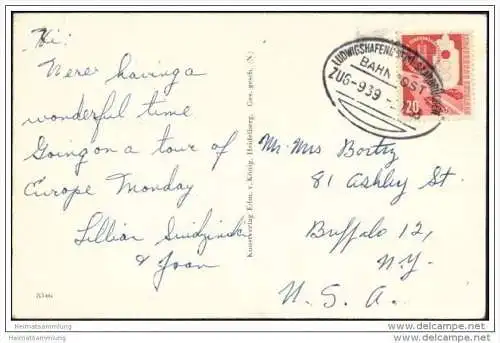 Hi!
Were having a
wonderful time
Going on a tour of
Europe Monday
Lillian
& Joan
A 346
Kunstverlag Edm. v. König, Heidelberg. Ges. gesch. (N)
LUDWIGSHAFEN
BAHNPOST
ZUG-939
20
Mr. Mrs Bortz
81 Ashley St.
Buffalo 12,
N.Y.
U. S. A.
Heimatsammlung Heimatsammlung
http://www.delcampe.net